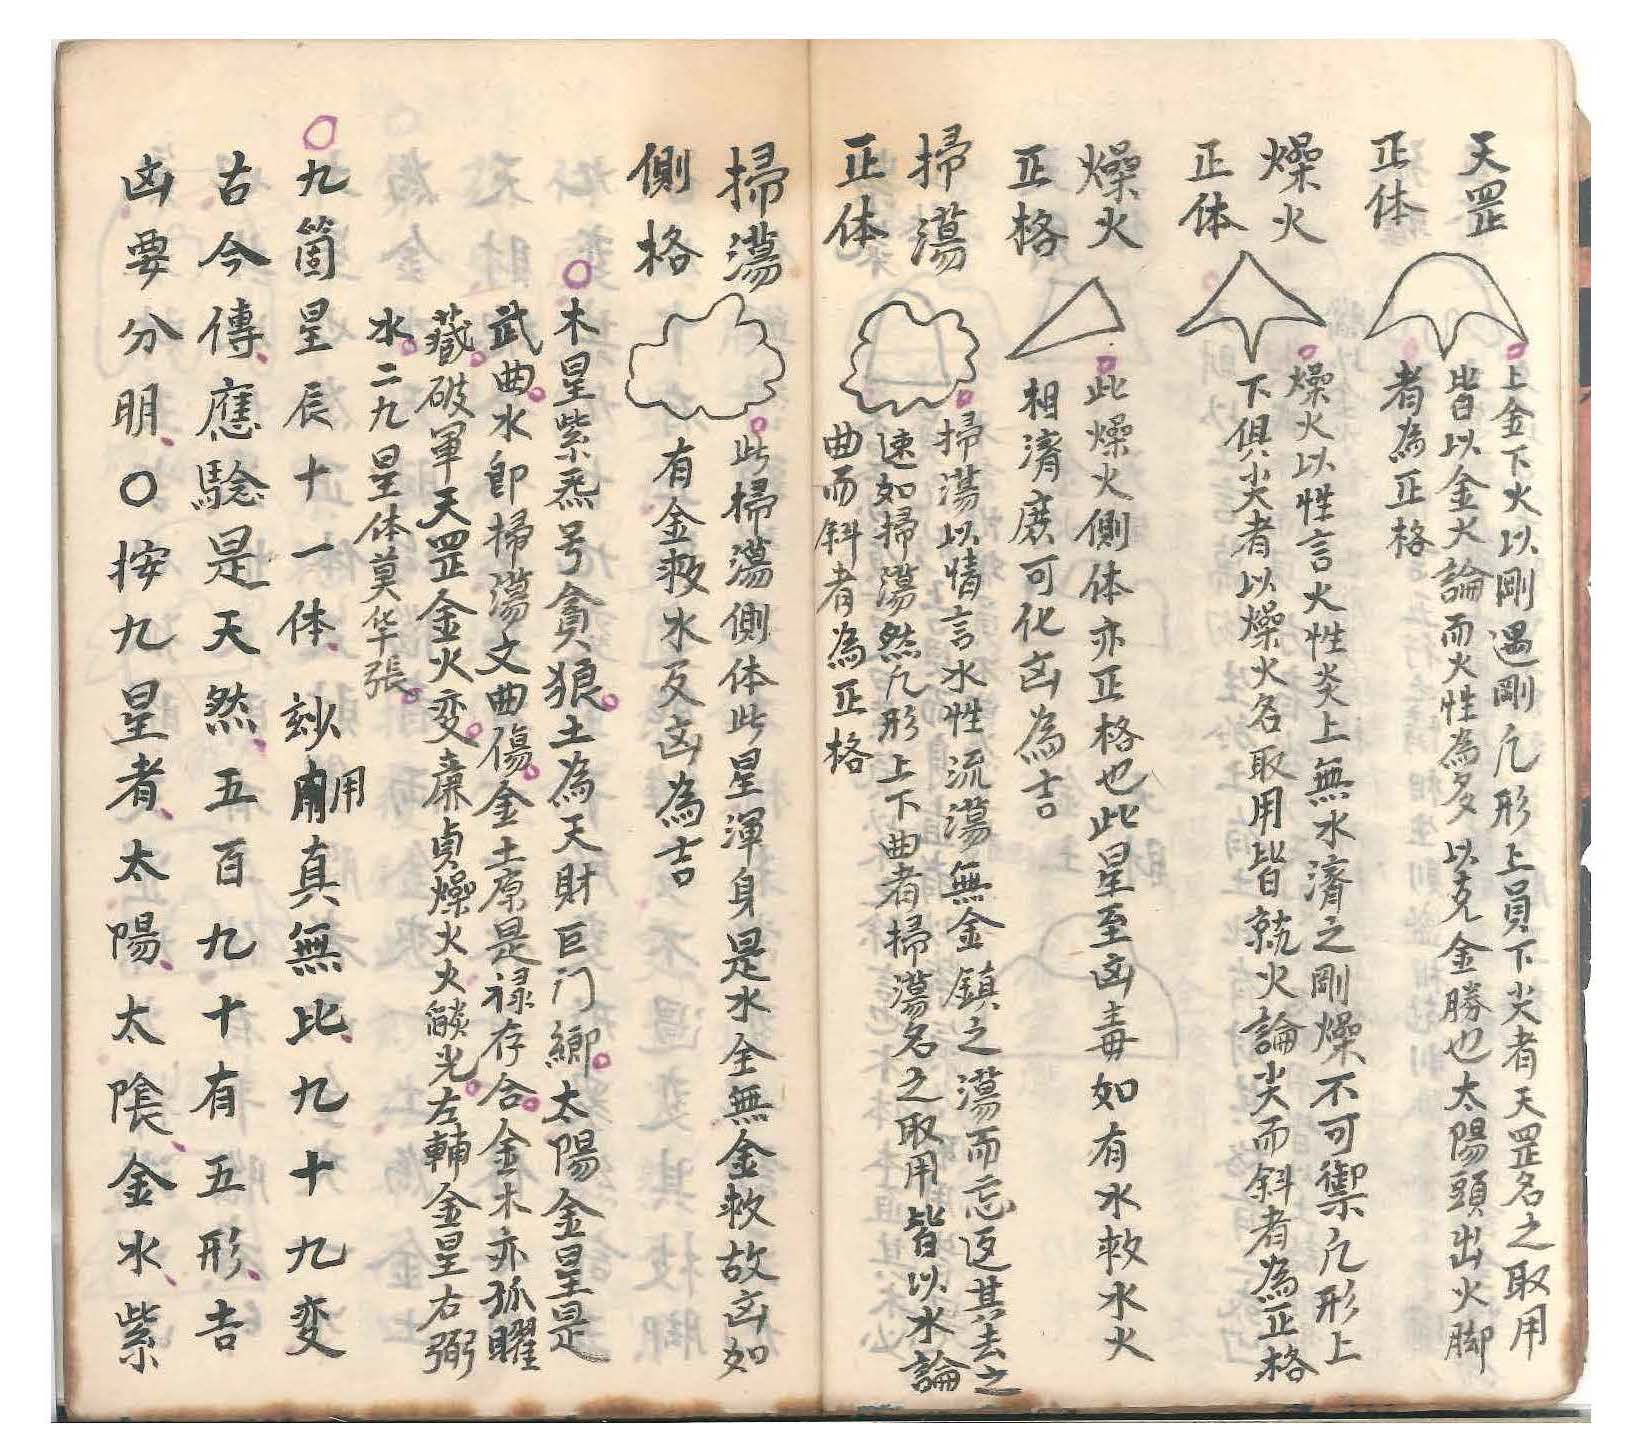 天罡
正体
上金下火以剛遇剛凢形上員下尖者天罡名之取用
皆以金火論而火性為多以克金勝也太陽頭出火脚
者為正格
燥火
正体
燥火以性言火性炎上無水濟之剛燥不可禦凢形上
下俱尖者以燥火名取用皆就火論尖而斜者為正格
燥火
正格
此燥火側体亦正格也此星至凶毒如有水救水火
相濟庶可化凶為吉
掃蕩
正体
掃蕩以情言水性流蕩無金鎮之蕩而忘返其去之
速如掃蕩然凢形上下曲者掃蕩名之取用皆以水論
曲而斜者為正格
掃蕩
側格
此掃蕩側体此星渾身是水全無金救故凶如
有金救水反凶為吉
木星紫炁号貪狼土為天財巨门鄉太陽金星是
武曲水即掃蕩文曲傷金土原是禄存合金木亦孤曜
藏破軍天罡金火变廉貞燥火火燄光左輔金星右弼
水二九星体莫华張
九箇星辰十一体玅用真無比九十九变
古今傳應騐是天然五百九十有五形吉
凶要分明〇按九星者太陽太陰金水紫